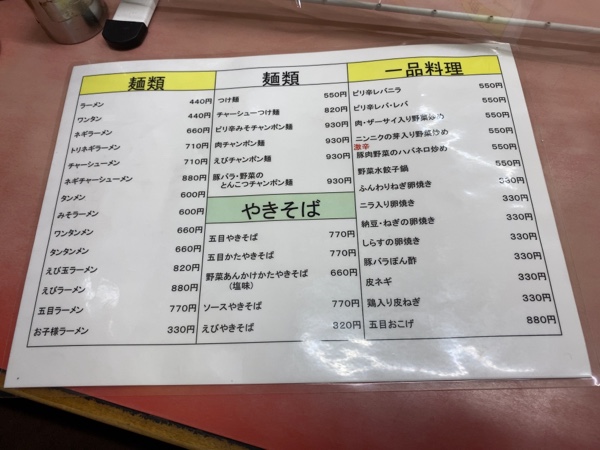 麺類
ラーメン 440円
ワンタン 440円
ネギラーメン 660円
トリネギラーメン 710円
チャーシューメン 710円
ネギチャーシューメン 880円
タンメン 600円
みそラーメン 600円
ワンタンメン 660円
タンタンメン 660円
えび玉ラーメン 820円
えびラーメン 880円
五目ラーメン 770円
お子様ラーメン 330円
麺類
つけ麺 550円
チャーシューつけ麺 820円
ピリ辛みそチャンポン麺 930円
肉チャンポン麺 930円
えびチャンポン麺 930円
豚バラ・野菜の
とんこつチャンポン麺 930円
やきそば
五目やきそば 770円
五目かたやきそば 770円
野菜あんかけかたやきそば 660円
(塩味)
ソースやきそば 770円
えびやきそば 320円
一品料理
ピリ辛レバニラ 550円
ピリ辛レバ・レバ 550円
肉・ザーサイ入り野菜炒め 550円
ニンニクの芽入り野菜炒め 550円
激辛
豚肉野菜のハバネロ炒め 550円
野菜水餃子鍋 550円
ふんわりねぎ卵焼き 330円
ニラ入り卵焼き 330円
納豆・ねぎの卵焼き 330円
しらすの卵焼き 330円
豚バラぽん酢 330円
皮ネギ 330円
鶏入り皮ねぎ 330円
五目おこげ 880円